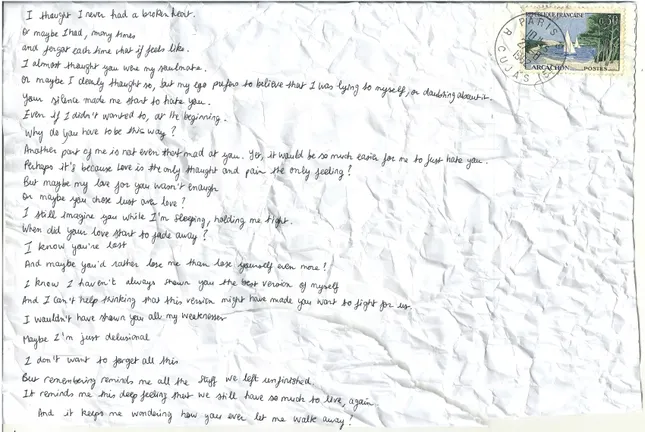 I thought I never had a broken heart.
Or maybe I had, many times
and forgot each time what it feels like.
I almost thought you were my soulmate.
Or maybe I clearly thought so, but my ego prefers to believe that I was lying to myself, or doubting about it.
Your silence made me start to hate you.
Even if I didn't wanted to, at the beginning.
Why do you have to be this way?
Another part of me is not even that mad at you. Yet, it would be so much easier for me to just hate you.
Perhaps it's because love is the only thought and pain the only feeling?
But maybe my love for you wasn't enough
Or maybe you chose lust over love?
I still imagine you while I'm sleeping, holding me tight.
When did your love start to fade away?
I know you're lost
And maybe you'd rather lose me than lose yourself even more?
I know I haven't always shown you the best version of myself
And I can't help thinking that this version might have made you want to fight for us.
I wouldn't have shown you all my weaknesses
Maybe I'm just delusional
I don't want to forget all this
But remembering reminds me all the stuff we left unfinished
It reminds me this deep feeling that we still have so much to live, again.
And it keeps me wondering how you ever let me walk away?
REPUBLIQUE FRANÇAISE
0,30
ARCACHON POSTES
PARIS
R. CUJAS (5e)